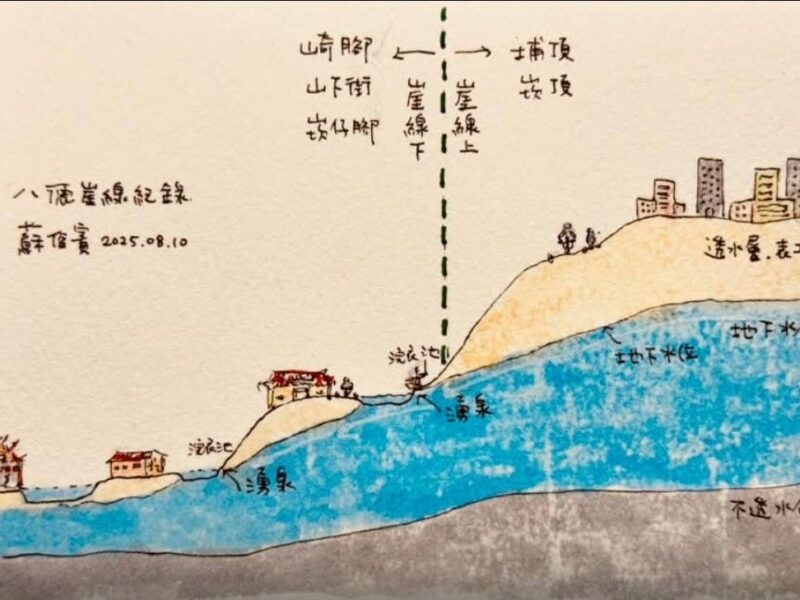 崎腳 ← → 埔頂
山下街 崁頂
崁仔腳
崖線下
崖線上
八德崖線紀錄
蘇信賓 2025.08.10
透水層.表土
地下水
地下水位
浣衣池
湧泉
浣衣池
湧泉
不透水